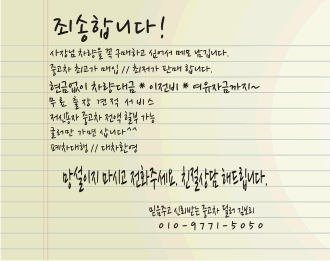 죄송합니다!
사장님 차량을 꼭 구매하고 싶어서 메모 남깁니다.
중고차 최고가 매입 // 최저가 판매 합니다.
현금없이 차량대금 * 이전비 * 여유자금까지~
무료 출장 견적 서비스
저신용자 중고차 전액 할부 가능
굴러만 가면 삽니다^^
폐차대행 // 대차환영
망설이지 마시고 전화주세요. 친절상담 해드립니다.
믿음주고 신뢰받는 중고차 딜러 김보리
010-9771-5050